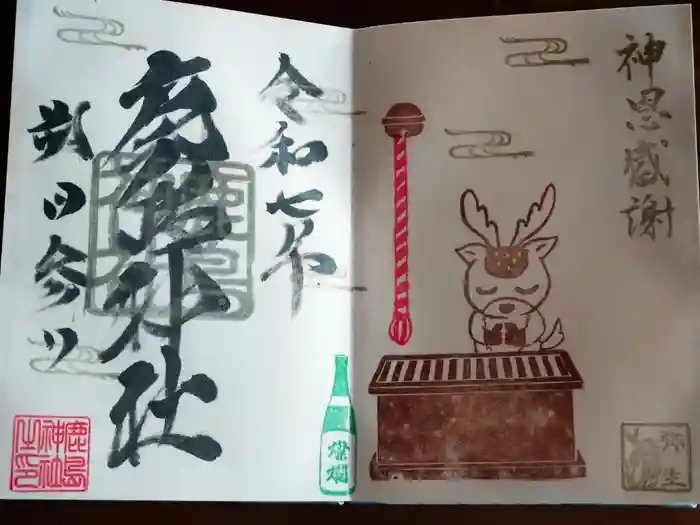 神恩感謝
弥生
令和七年
鹿島神社
朔日参り
鹿島
神社
之印
燦爛